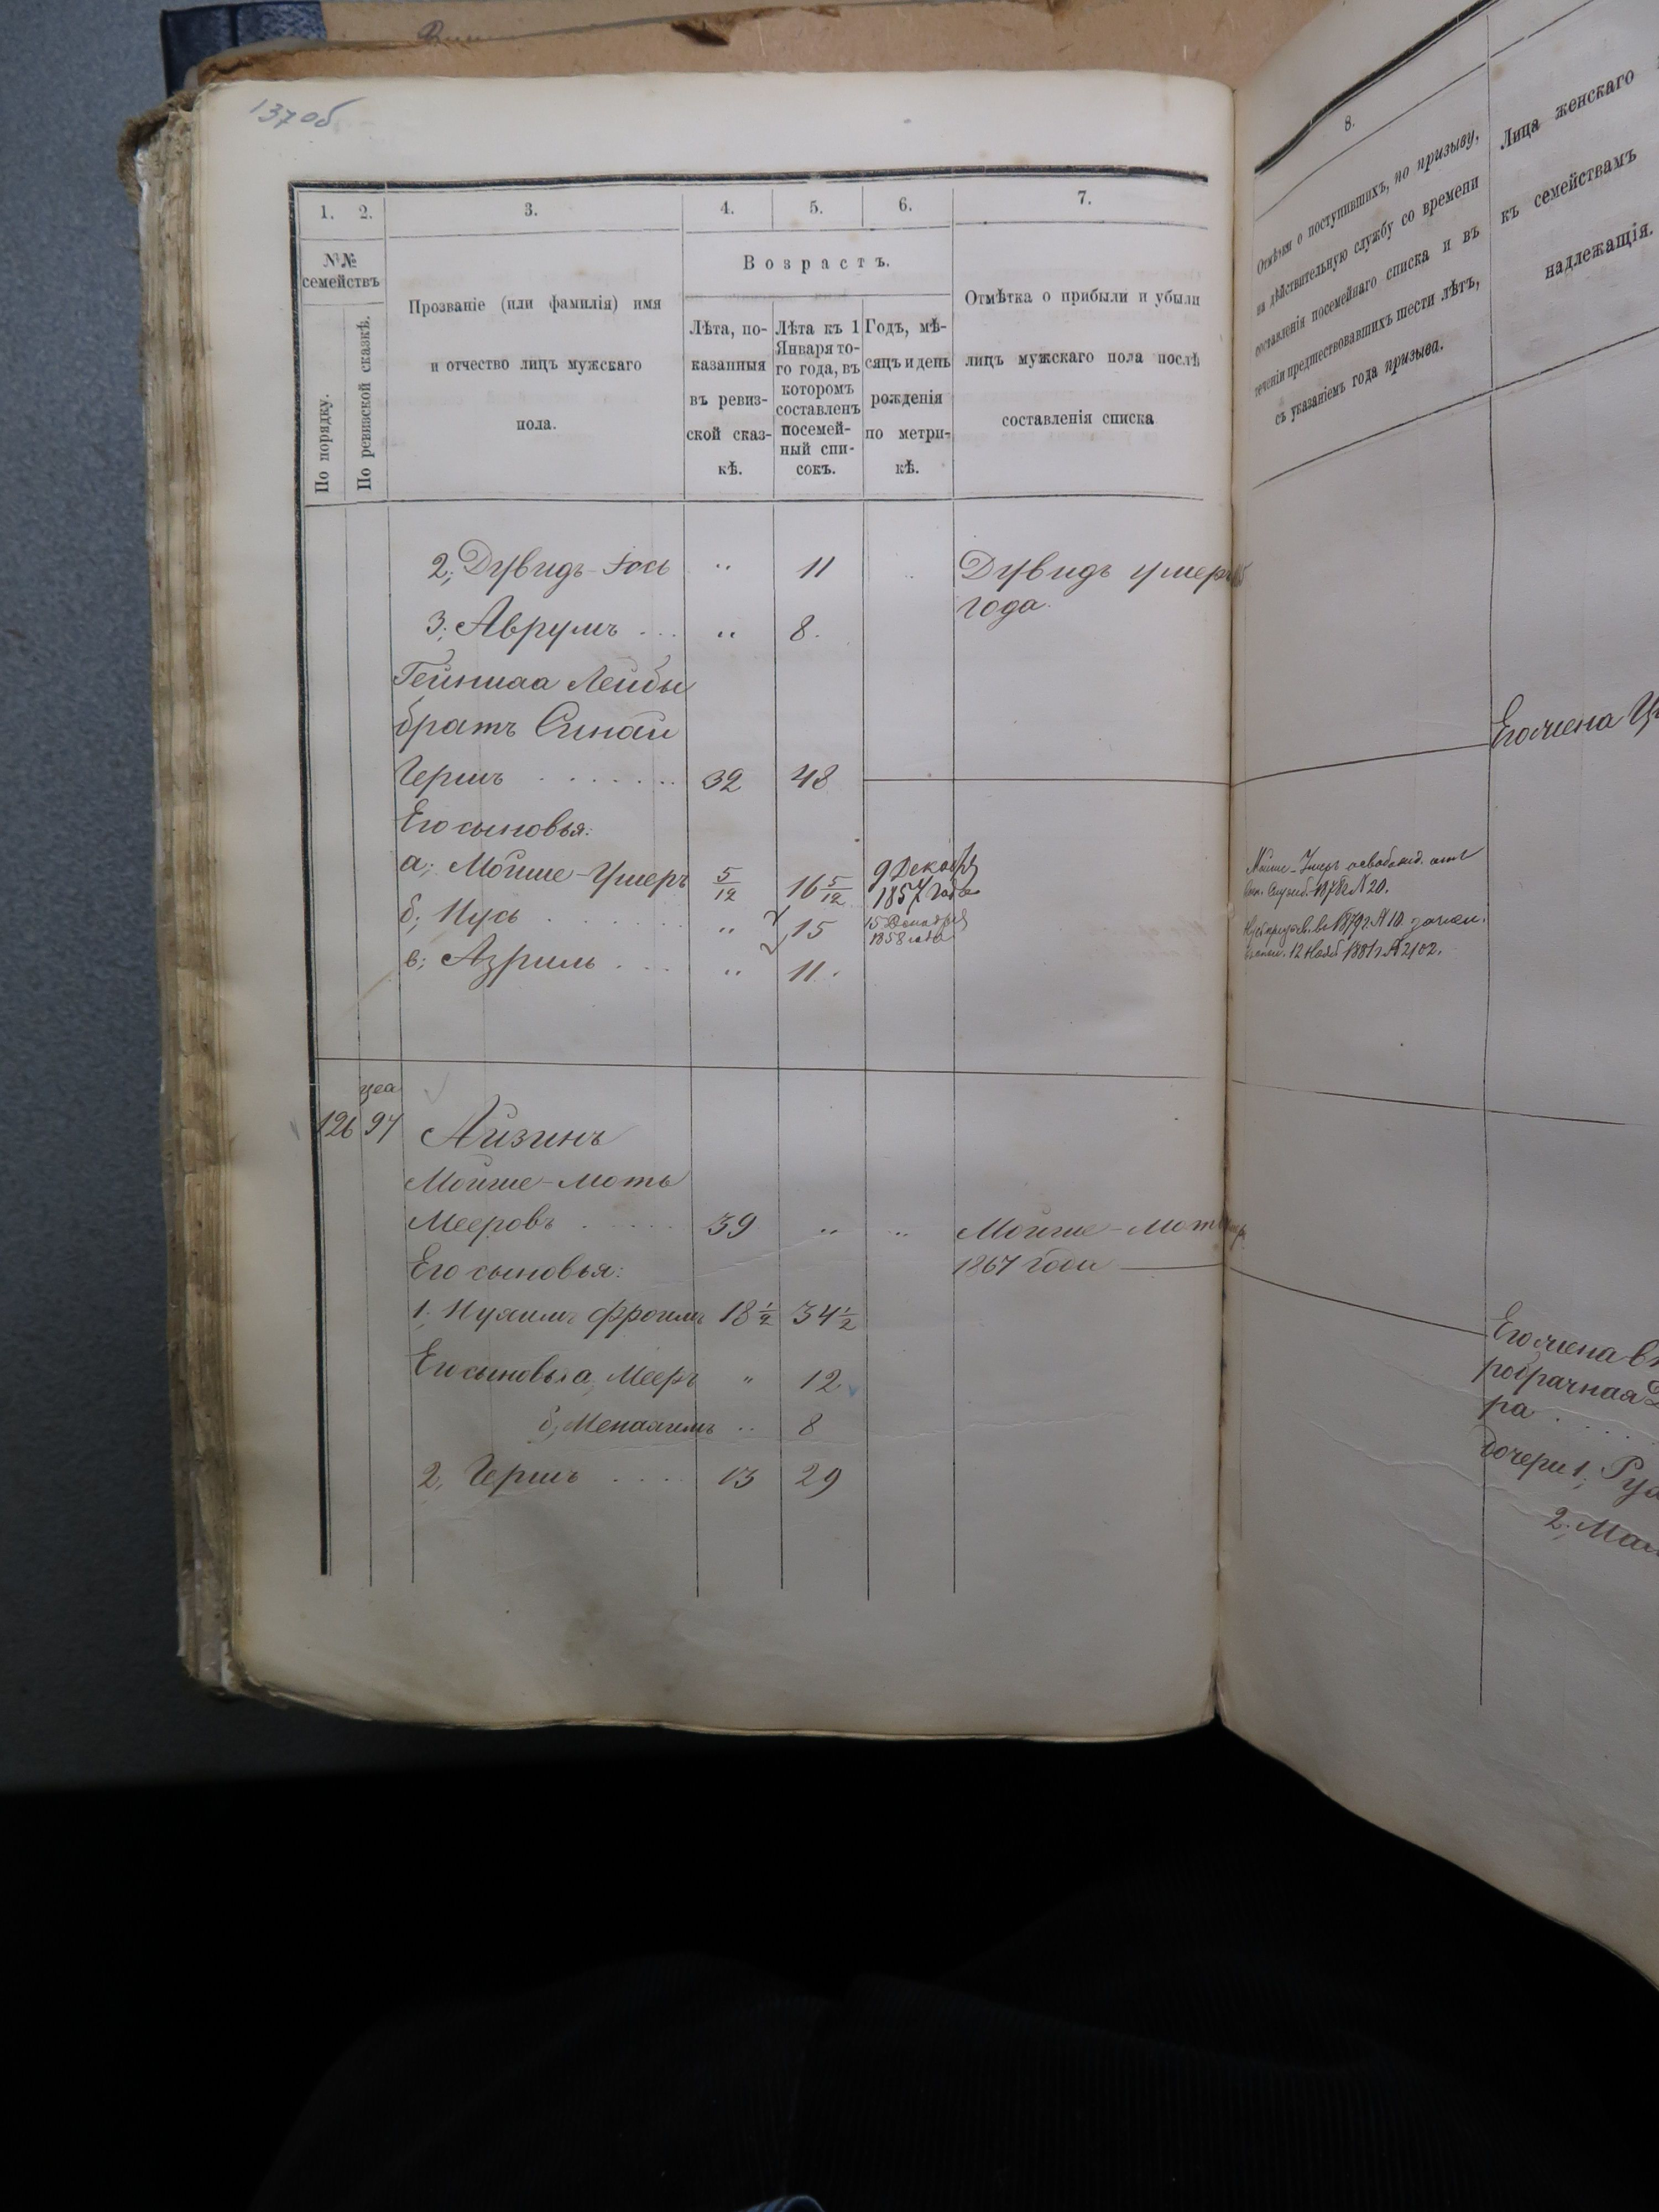 137об
1. 2. 3. 4. 5. 6. 7.
№№ семействъ
По порядку.
По ревизской сказкѣ.
Прозваніе (или фамилія) имя
и отчество лицъ мужскаго
пола.
Возрастъ.
Лѣта, по-
казанныя
въ ревиз-
ской сказ-
кѣ.
Лѣта къ 1
Января то-
го года, въ
которомъ
составленъ
посемей-
ный спи-
сокъ.
Годъ, мѣ-
сяцъ и день
рожденія
по метри-
кѣ.
Отмѣтка о прибыли и убыли
лицъ мужскаго пола послѣ
составленія списка
2, Дувидъ-Іось " 11 " Дувидъ умеръ
года.
3, Аврумъ . . . " 8.
Лейбы
братъ Синай
Гершъ . . . . . . . 32 48
Его сыновья:
а; Мойше-Умеръ 5/12 16 5/12 9 Декабря
1857 года
б; Нусь . . . . . " 15 15 Декабря
1858 года
в; Азриль . . . " 11.
126 97 Айзинъ
Мойше-Моть
Мееровъ . . . . . 39 " " Мойше-Моть
1867 года
Его сыновья:
1; Нухимъ Фроимъ 18 1/2 34 1/2
Его сыновья а, Мееръ " 12
б, Менахимъ " 8
2, Гершъ . . . . 13 29
8.
Отмѣтки о поступившихъ, по призыву,
на дѣйствительную службу со времени
составленія посемейнаго списка и въ
теченіи предшествовавшихъ шести лѣтъ,
съ указаніемъ года призыва.
Лица женскаго
къ семействамъ
надлежащія.
Его жена
Мойше-Умеръ освобожд. отъ
1878 г. № 20.
въ 1879 г. № 10
12 Нояб 1881 г. № 2102.
Его жена
ра . . .
дочери 1;
2;